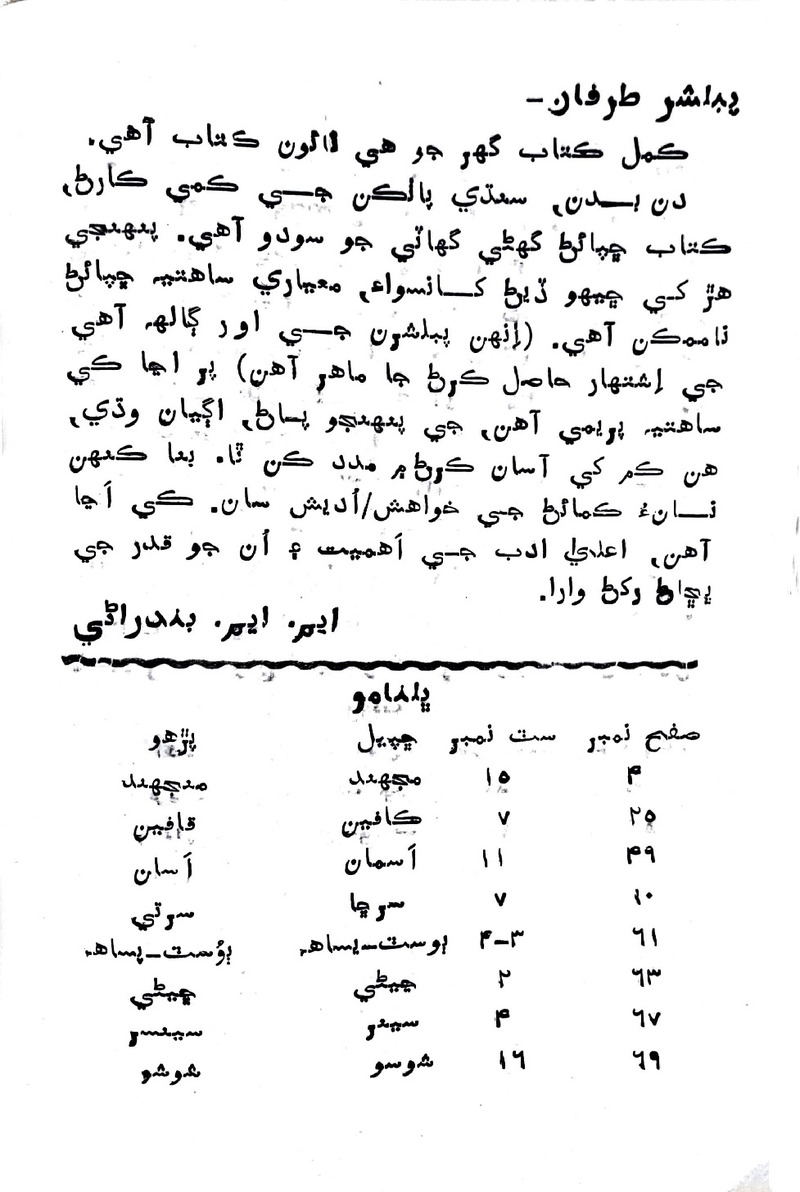 پبلشر طرفان-
ڪمل ڪتاب گهر جو هي نائون ڪتاب آهي.
دن بـدن, سنڌي پالڪن جـي ڪمي ڪارڻ,
ڪتاب ڇپائڻ گهڻي گهاٽي جو سودو آهي. پنهنجي
هڙ کـي ڇيهو ڏيڻ کـانسواءِ, معياري ساهتيہ ڇپائڻ
ناممڪن آهي. (اِنهن پبلشرن جـي اور ڳالهہ آهي
جي اِشتهار حاصل ڪرڻ جا ماهر آهن) پر اڃا ڪي
ساهتيہ پريمي آهن, جي پنهنجو پساڻ, اڳيان وڌي,
هن ڪم کي آسان ڪرڻ ۾ مدد ڪن ٿا. بنا ڪنهن
نـانءُ ڪمائڻ جـي خواهش/اُديش سان. ڪي اَڃا
آهن, اعليٰ ادب جـي اَهميت ۽ اُن جو قدر جي
پڇاڻ رکڻ وارا.
ايم. ايم. بندراڻي
ڀلنامو
صفح نمبر ست نمبر ڇپيل پڙهو
۴ ۱۵ مجهند منجهند
۲۵ ۷ ڪافين قافين
۴۹ ۱۱ اَسمان اَسان
۱۰ ۷ سرڇا سرتي
٦۱ ۳-۴ بوست-يساهہ ٻوُست-پساهہ
٦۳ ۲ جيڻي ڇيڻي
٦۷ ۴ سينر سينسر
٦۹ ۱٦ شوسو شوشو